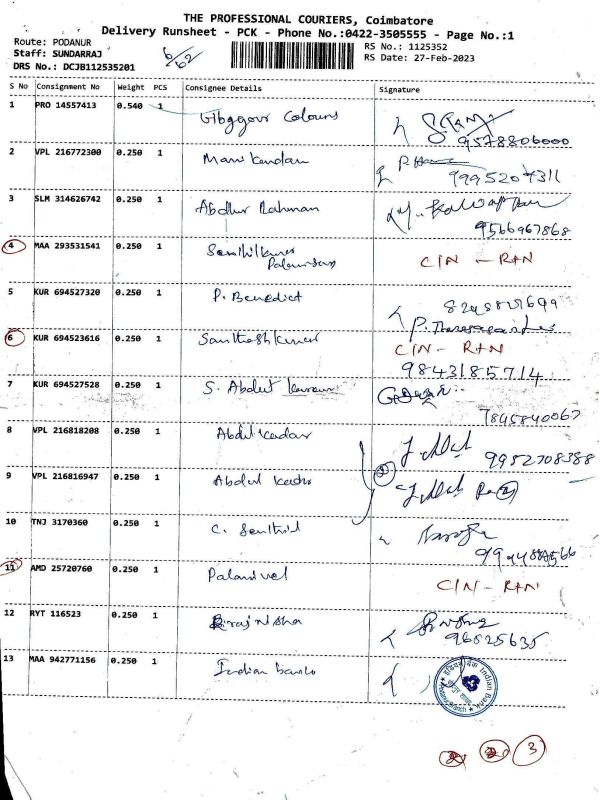 THE PROFESSIONAL COURIERS, Coimbatore
Delivery Runsheet - PCK - Phone No.:0422-3505555 - Page No.:1
Route: PODANUR
RS No.: 1125352
Staff: SUNDARRAJ
RS Date: 27-Feb-2023
DRS No.: DCJB112535201
S No Consignment No Weight PCS Consignee Details Signature
1 PRO 14557413 0.540 1 Colours
9578806000
2 VPL 216772300 0.250 1 Manikandan
9995207311
3 SLM 314626742 0.250 1 Abdhur Rahman
9566967868
4 MAA 293531541 0.250 1 Senthilkumar C/N - R+N
5 KUR 694527320 0.250 1 P. Benedict
6 KUR 694523616 0.250 1 Santhoshkumar C/N - R+N
9843185714
7 KUR 694527528 0.250 1 S. Abdul
7845840067
8 VPL 216818208 0.250 1 Abdul kadar
9952708388
9 VPL 216816947 0.250 1 Abdul kadar
2
10 TNJ 3170360 0.250 1 C. Senthil
11 AMD 25720760 0.250 1 Palanivel C/N - R+N
12 RYT 116523 0.250 1
96025635
13 MAA 942771156 0.250 1 Indian bank
इंडियन बैंक Indian Bank
3